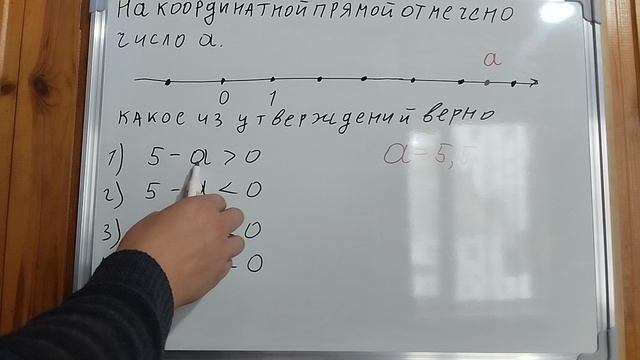 На координатной прямой отмечено
число a.
a
0 1
какое из утверждений верно
1) 5 - a > 0
a = 5,5
2) 5 - a < 0
3) 0
0